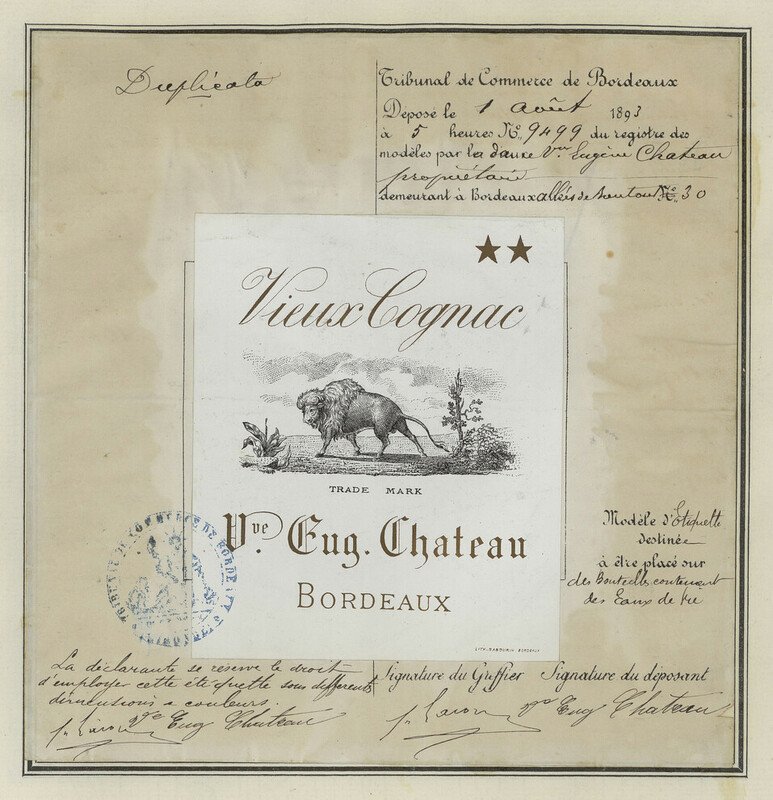 Duplicata
Tribunal de Commerce de Bordeaux
Déposé le 1 août 1893
à 5 heures Nº 9499 du registre des
modèles par la dame Vve Eugène Chateau
propriétaire
demeurant à Bordeaux allées de Nº 30
★★
Vieux Cognac
TRADE MARK
Vve. Eug. Chateau
BORDEAUX
LITH. BORDEAUX
TRIBUNAL DE COMMERCE DE BORDEAUX
Modèle d'Etiquette
destinée
à être placé sur
des Bouteilles contenant
des Eaux de vie
La déclarante se réserve le droit
d'employer cette étiquette sous differents
dimensions & couleurs.
Vve Eug Chateau
Signature du Greffier Signature du déposant
Vve Eug Chateau